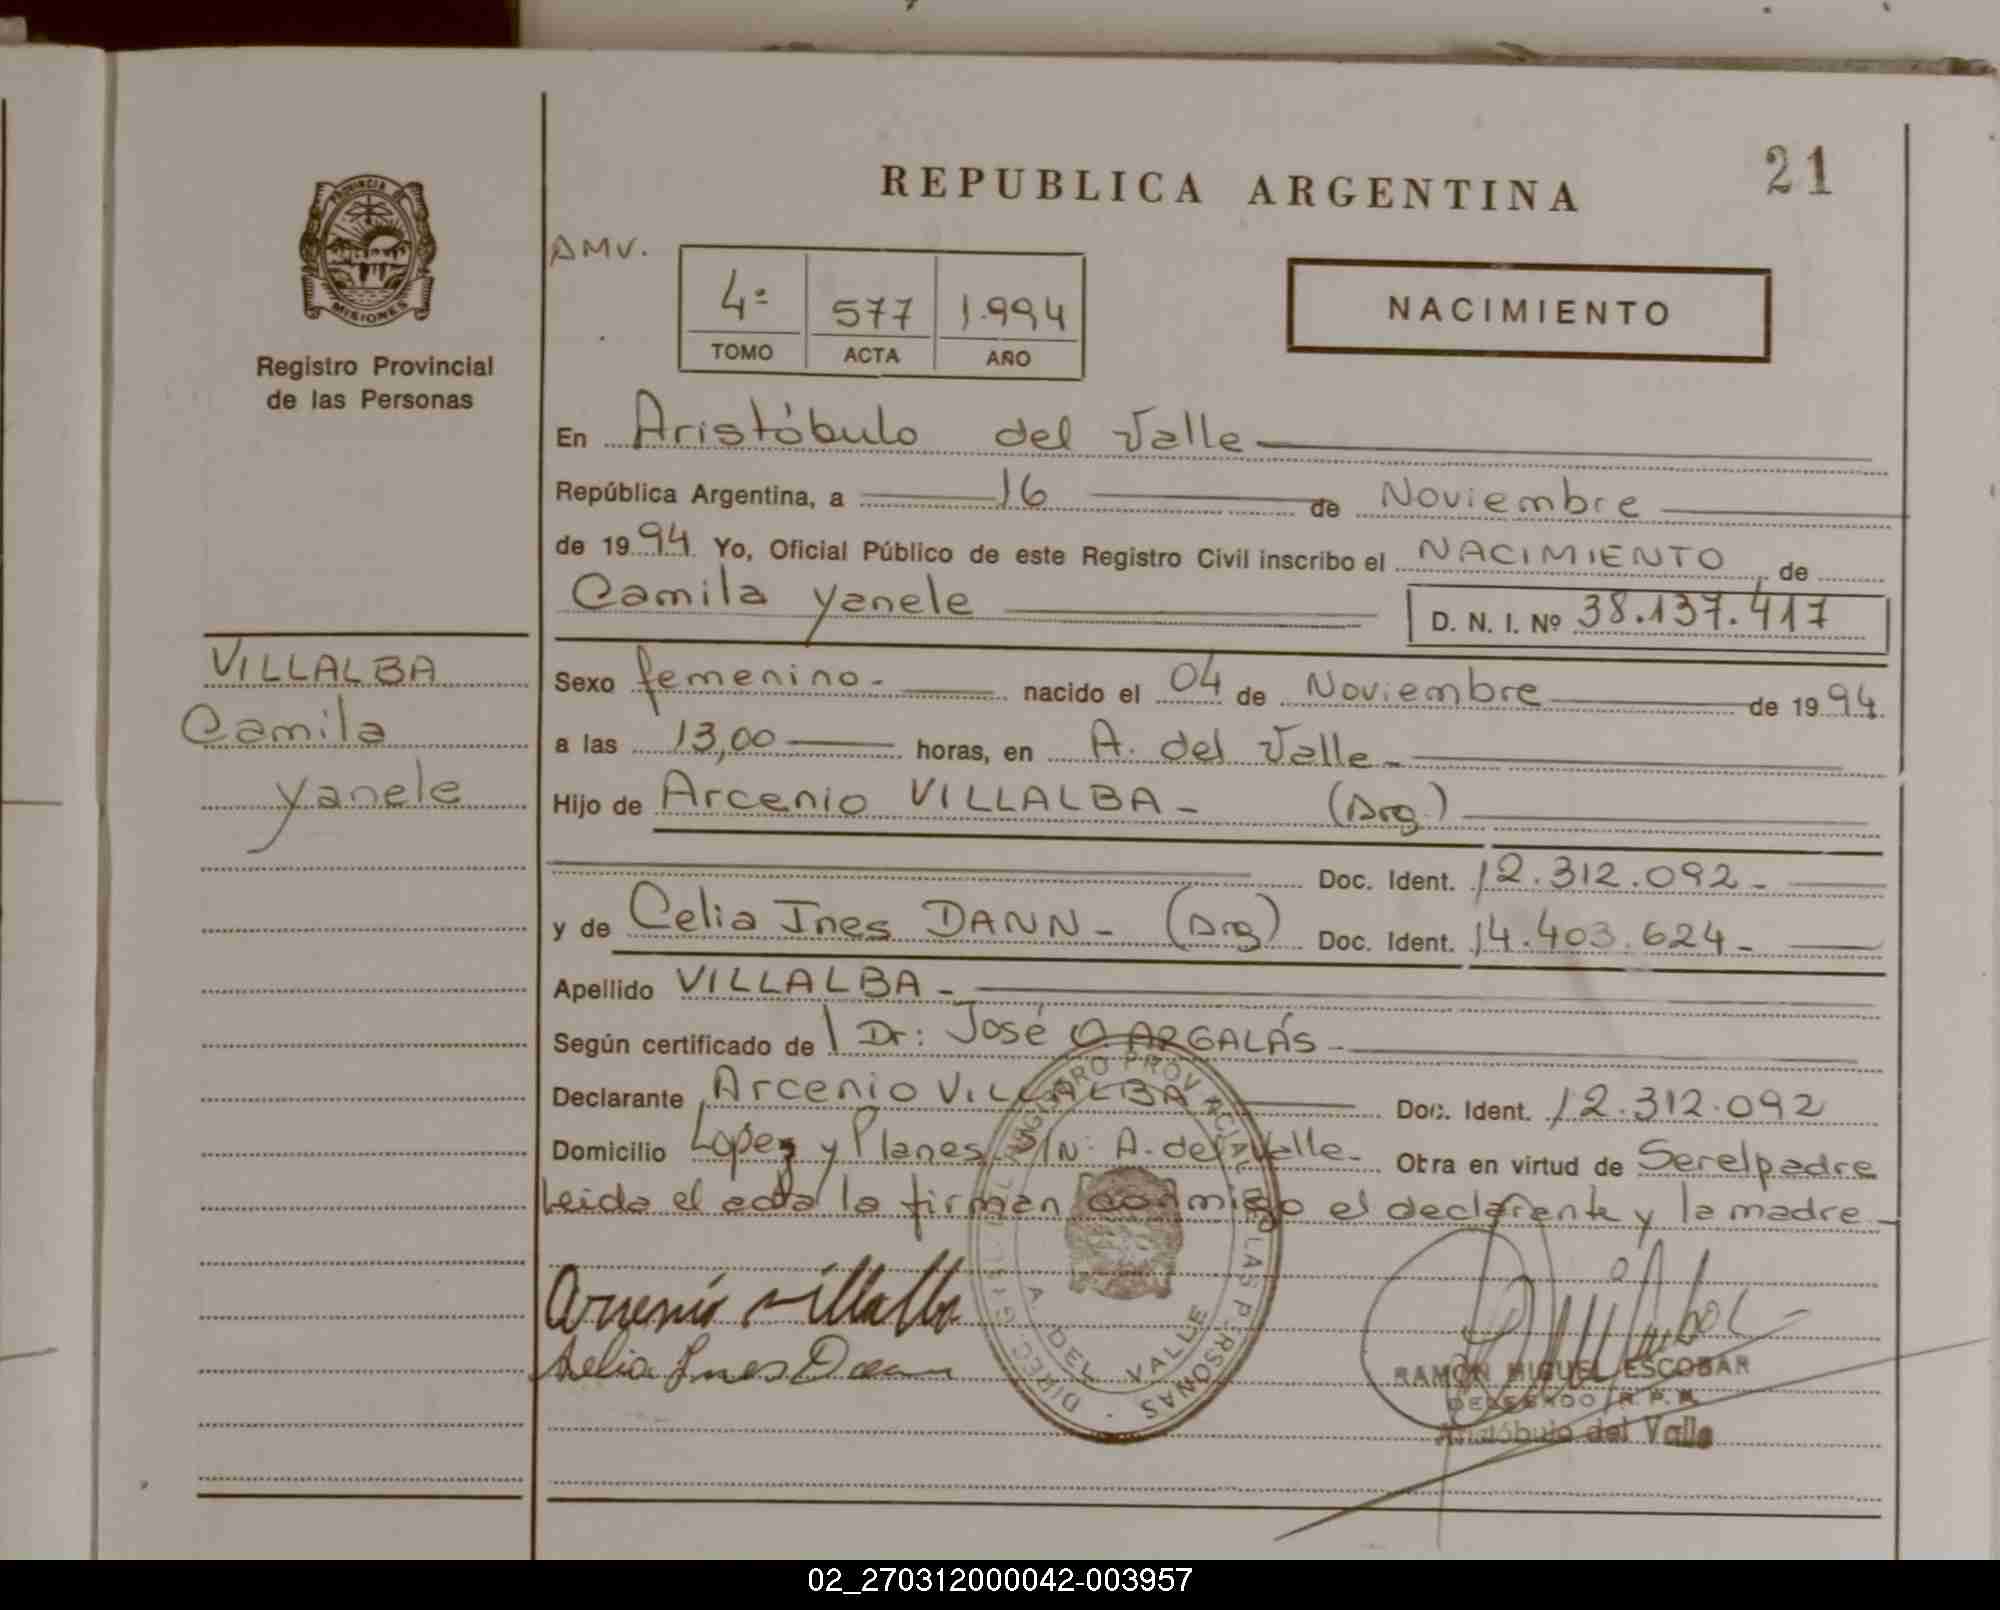 REPUBLICA ARGENTINA
21
PROVINCIA DE
MISIONES
Registro Provincial
de las Personas
AMV.
4º 577 1.994
TOMO ACTA AÑO
NACIMIENTO
En Aristóbulo del Valle
República Argentina, a 16 de Noviembre
de 1994 Yo, Oficial Público de este Registro Civil inscribo el NACIMIENTO de
Camila Yanele D. N. I. Nº 38.137.417
VILLALBA
Camila
Yanele
Sexo femenino - nacido el 04 de Noviembre de 1994
a las 13,00 horas, en A. del Valle -
Hijo de Arcenio VILLALBA - (Arg.)
Doc. Ident. 12.312.092 -
y de Celia Ines DANN - (Arg) Doc. Ident. 14.403.624 -
Apellido VILLALBA -
Según certificado de Dr: José O. ARGALÁS -
Declarante Arcenio VILLALBA Doc. Ident. 12.312.092
Domicilio Lopez y Planes S/N: A. del Valle - Obra en virtud de Ser el padre
Leida el acta la firman conmigo el declarante y la madre -
Arcenio Villalba
Celia Ines Dann
A. DEL VALLE
RAMÓN MIGUEL ESCOBAR
DELEGADO R. P. P.
Aristóbulo del Valle
02_270312000042-003957